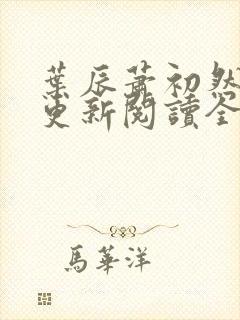 葉辰蕭初然
更新閱讀全
馬華洋